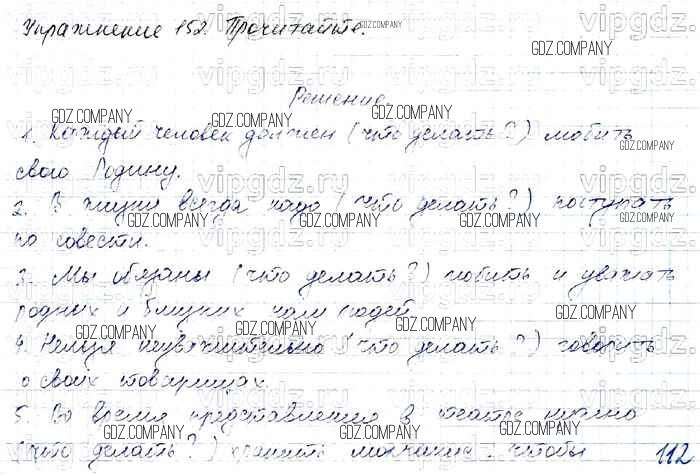 Упражнение 152. Прочитайте.
Решение.
1. Каждый человек должен (что делать?) любить
свою Родину.
2. В жизни всегда надо (что делать?) поступать
по совести.
3. Мы обязаны (что делать?) любить и уважать
родных и близких нам людей.
4. Нельзя неуважительно (что делать?) говорить
о своих товарищах.
5. Во время представления в театре нужно
(что делать?) хранить молчание, чтобы
112
GDZ.COMPANY
vipgdz.ru